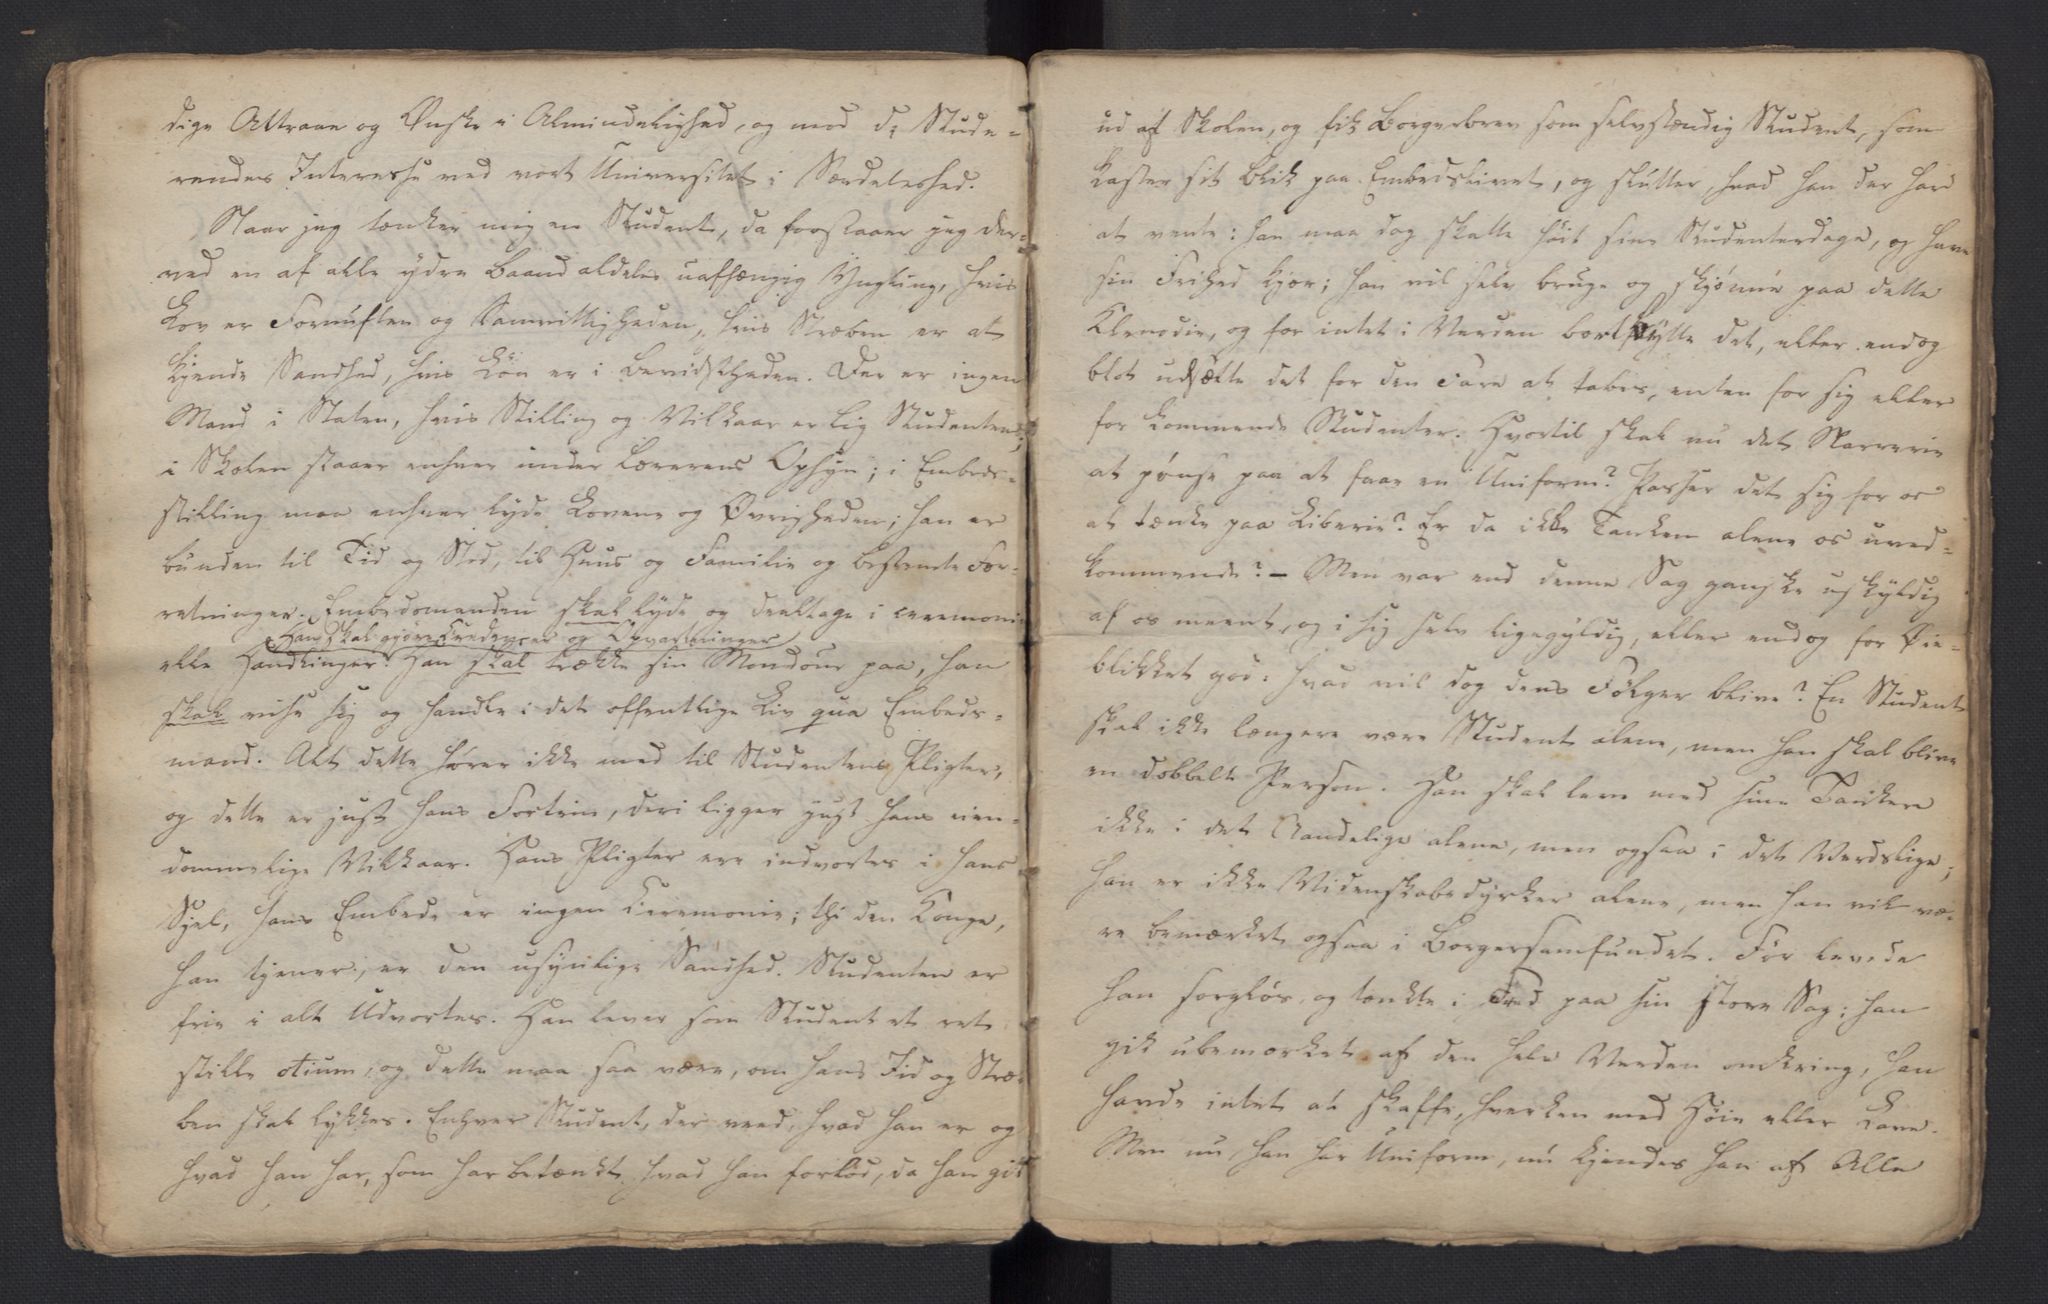 dige Attraae og Ønske i Almindelighed, og mod de Stude-
rendes Interesse ved vort Universitet i Særdeleshed.
Naar jeg tænker mig en Student, da forstaaer jeg der-
ved en af alle ydre Baand aldeles uafhængig Yngling, hvis
Lov er Fornuften og Samvittigheden, hvis Stræben er at
kjende Sandhed, hvis Løn er i Bevidstheden. Der er ingen
Mand i Staten, hvis Stilling og Vilkaar er lig Studentens;
i Skolen staaer enhver under Lærerens Opsyn; i Embeds-
stilling maa enhver lyde Lovene og Øvrigheden; han er
bunden til Tid og Sted, til Huus og Familie og bestemte For-
retninger. Embedsmanden skal lyde og deeltage i ceremoni-
Han skal gjøre Credenser og Opvartninger
elle Handlinger. Han skal trække sin Mondour paa, han
skal vise sig og handle i det offentlige Liv qua Embeds-
mand. Alt dette hører ikke med til Studentens Pligter,
og dette er just hans Fortrin, deri ligger just hans eien-
dommelige Vilkaar. Hans Pligter ere indvortes i hans
Sjel, hans Embede er ingen Ceremonie; thi den Konge,
han tjener, er den usynlige Sandhed. Studenten er
frie i alt Udvortes. Han lever som Student et ret
stille otium, og dette maa saa være, om hans Id og Stræ-
ben skal lykkes. Enhver Student, der veed, hvad han er og
hvad han har, som har betænkt hvad han forlod, da han gik
ud af Skolen, og fik Borgerbrev som selvstændig Student, som
kaster sit Blik paa Embedslivet, og slutter, hvad han der har
at vente: han maa dog skatte høit sine Studenterdage, og have
sin Frihed kjær; han vil selv bruge og skjønne paa dette
Klenodie, og for intet i Verden bortbytte det, eller endog
blot udsætte det for den Fare at tabes, enten for sig eller
for kommende Studenter. Hvortil skal nu det Narrerie
at pønse paa at faae en Uniform? Passer det sig for os
at tænke paa Liberie? Er da ikke Tanken alene os uved-
kommende? – Men var end denne Sag ganske uskyldig
af os meent, og i sig selv ligegyldig, eller endog for Øie-
blikket god: hvad vil dog dens Følger blive? En Student
skal ikke længere være Student alene, men han skal blive
en dobbelt Person. Han skal leve med sine Tanker
ikke i det Aandelige alene, men ogsaa i det Verdslige;
han er ikke Videnskabsdyrker alene, men han vil væ-
re bemærket ogsaa i Borgersamfundet. Før levede
han sorgløs, og tænkte i Fred paa sin store Sag; han
gik ubemærket af den hele Verden omkring, han
havde intet at skaffe, hverken med Høie eller Lave.
Men nu han har Uniform, nu kjendes han af Alle